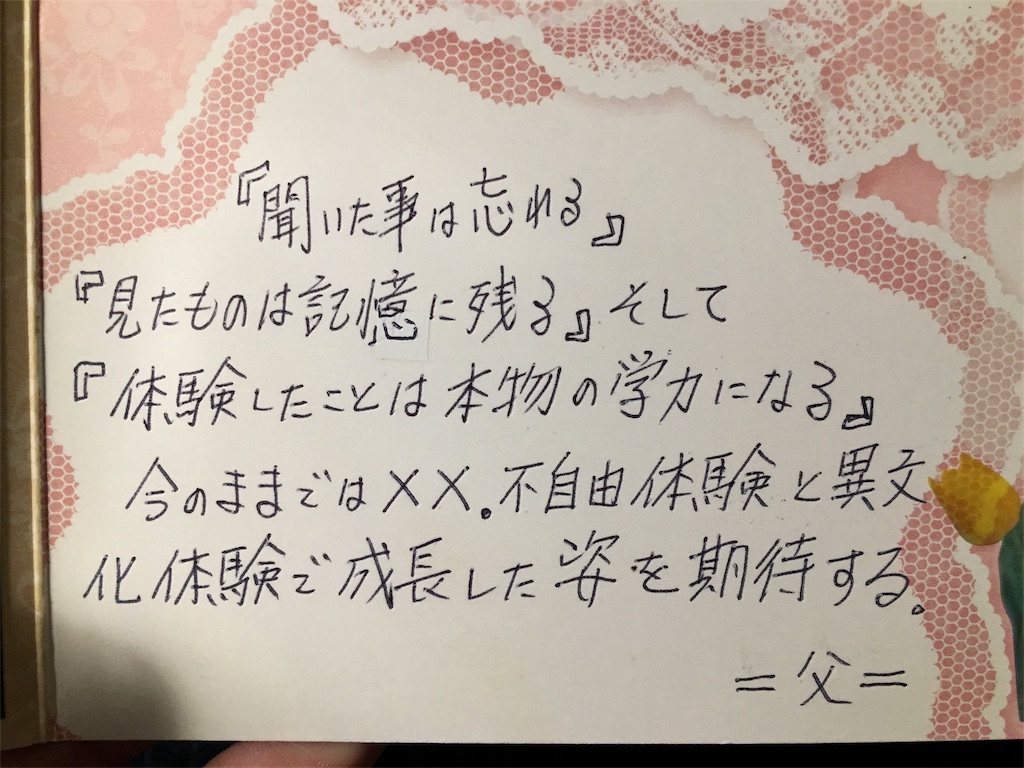 『聞いた事は忘れる』
『見たものは記憶に残る』そして
『体験したことは本物の学力になる』
今のままでは××。不自由体験と異文
化体験で成長した姿を期待する。
=父=